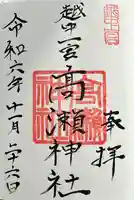 奉拝
越中一宮
高瀬神社
令和六年十一月二十六日